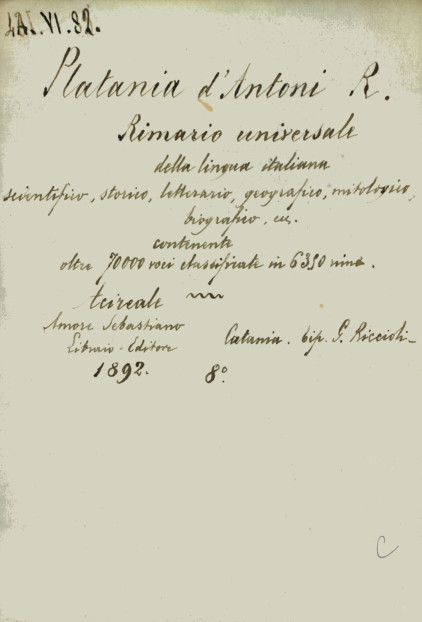 LAI. VI. 82.
Platania d'Antoni R.
Rimario universale
della lingua italiana
scientifico, storico, letterario, geografico, mitologico,
biografico, ecc.
contenente
oltre 70000 voci classificate in 6350 rime.
Acireale
Amore Sebastiano
Catania. tip. G. Riccioli
Libraio-Editore
1892. 8°.
C